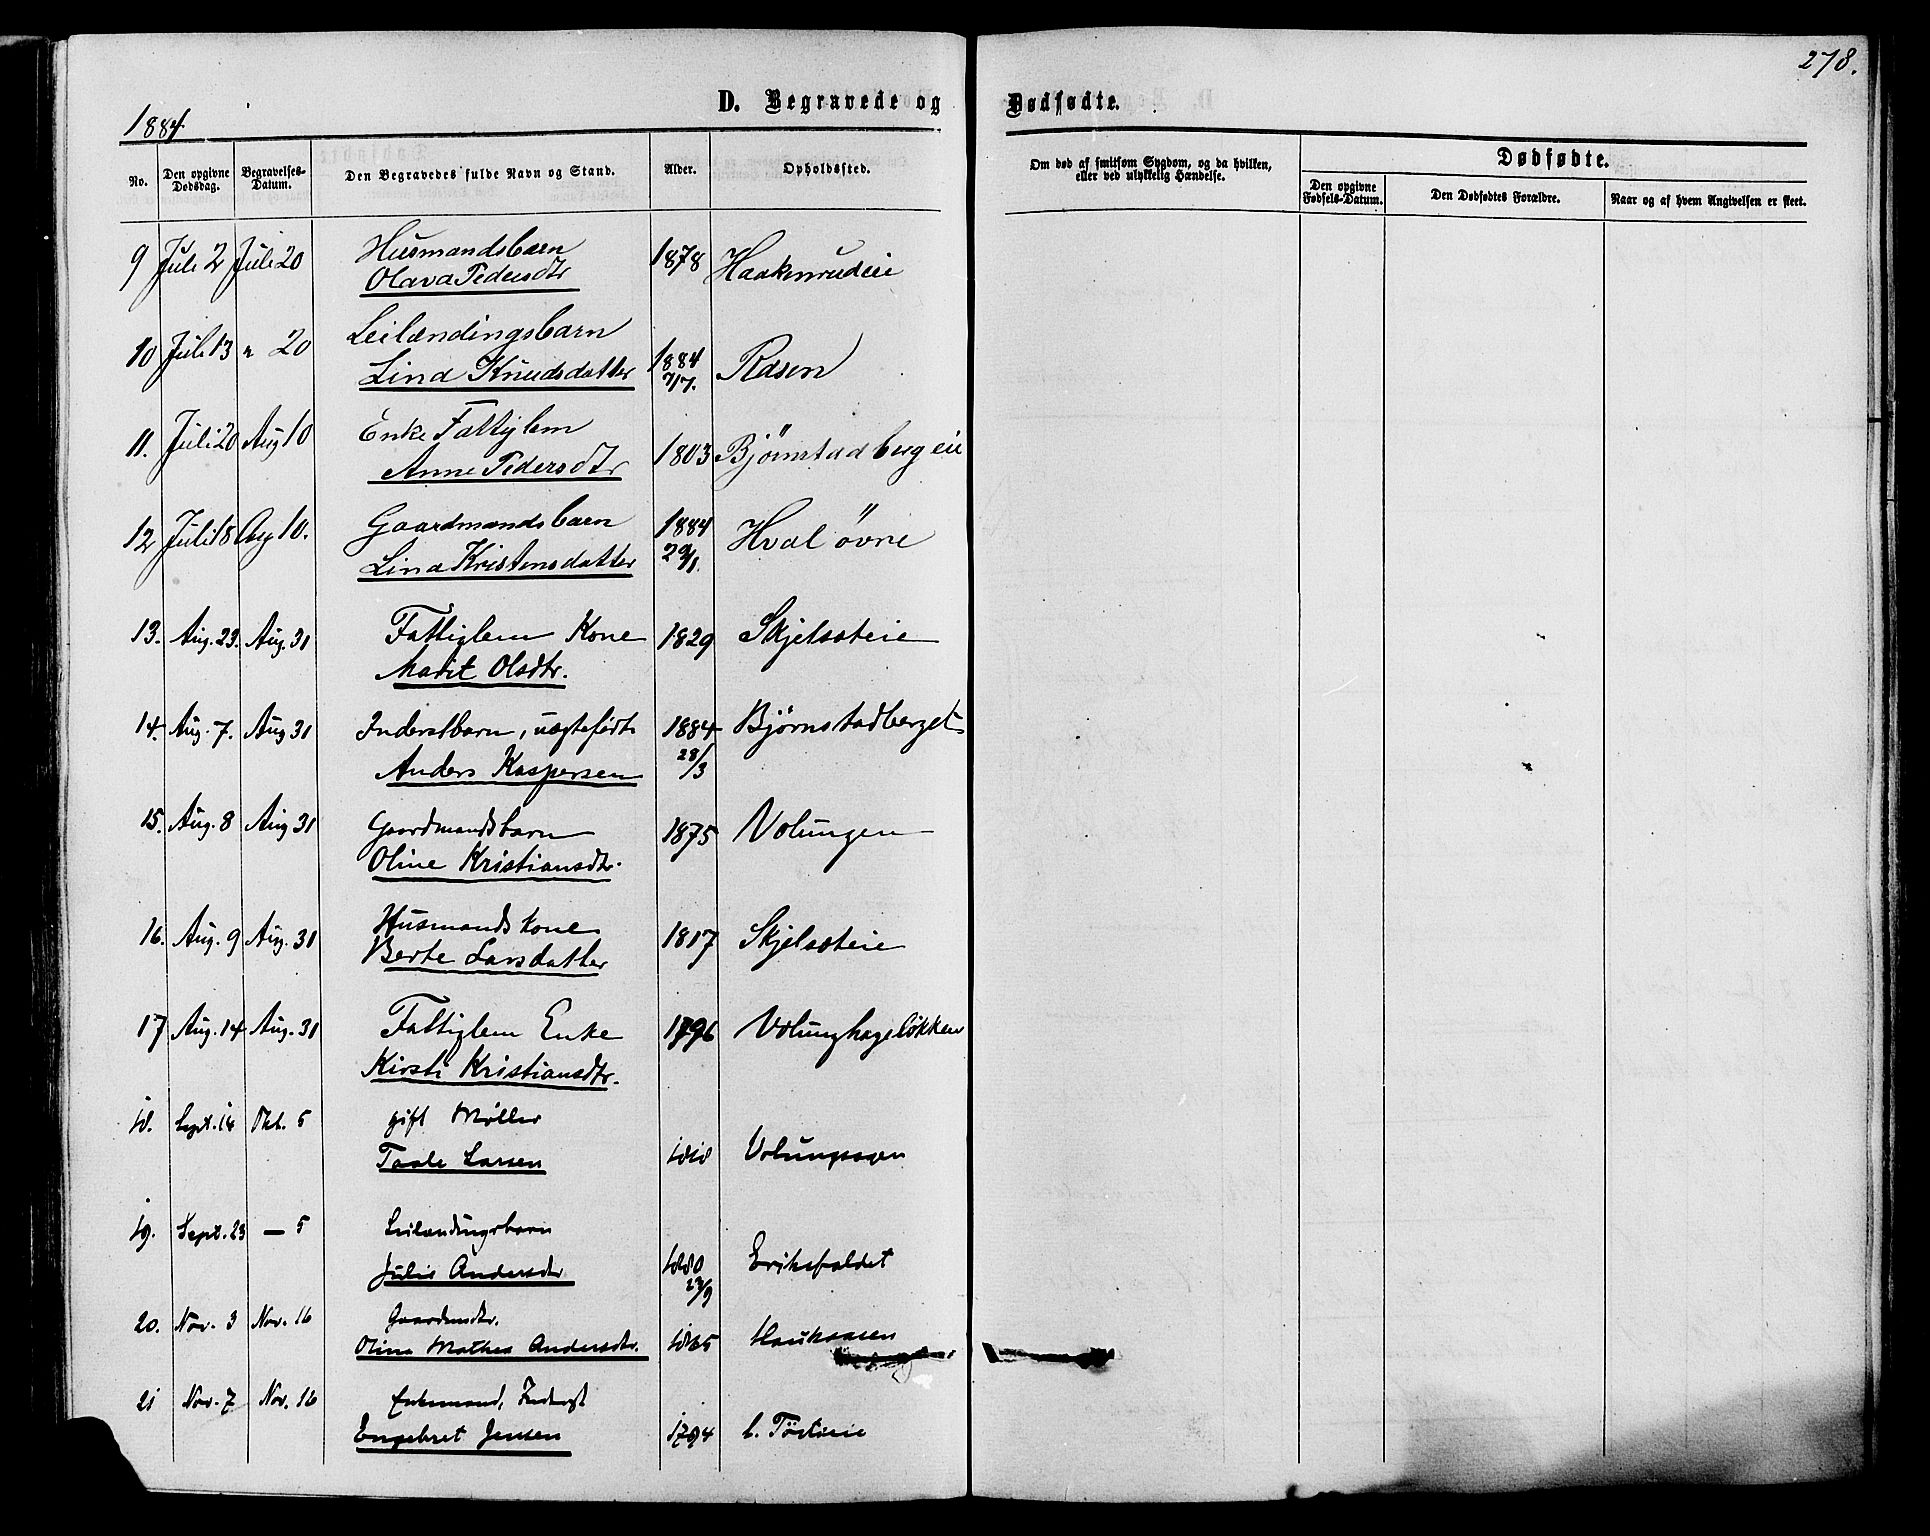 278.
1884
D. Begravede og Dødfødte.
No. Den opgivne Dødsdag. Begravelses-Datum. Den Begravedes fulde Navn og Stand. Alder. Opholdssted. Om død af smitsom Sygdom, og da hvilken, eller ved ulykkelig Hændelse. Dødfødte.
Den opgivne Fødsels-Datum. Den Dødfødtes Forældre. Naar og af hvem Angivelsen er skeet.
9 Juli 2 Juli 20 Husmandsbarn 1878 Haakenrudeie
Olava Pedersdtr
10 Juli 13 " 20 Leilændingsbarn 1884 Rasen
Lina Knudsdatter 7/7.
11. Juli 20 Aug 10 Enke Fattiglem 1803 Bjørnstadbergeie
Anne Pedersdtr
12 Juli 18 Aug 10. Gaardmandsbarn 1884 Hval øvre
Lina Kristensdatter 29/1.
13. Aug. 23. Aug. 31 Fattiglem Kone 1829 Skjelsoteie
Marit Olsdtr.
14. Aug. 7. Aug 31 Inderstbarn, uægtefødt 1884 Bjørnstadberget
Anders Kaspersen 28/3
15. Aug. 8 Aug 31 Gaardmandsbarn 1875 Volungen
Oline Kristiansdtr.
16. Aug. 9 Aug. 31 Husmandskone 1817 Skjelsoteie
Berte Larsdatter
17 Aug. 14 Aug. 31 Fattiglem Enke 1796 Volunghageløkken
Kirsti Kristiansdtr.
18. Sept. 14 Okt. 5 gift Møller 1818 Volungssøen
Taale Larsen
19. Sept. 23 — 5 Leilændingsbarn
Julie Andersdtr 1880 Eriksfaldet
23/9
20. Nov. 3 Nov. 16 Gaardmdtr.
Olina Mathea Andersdtr. 1865 Haukaasen
21 Nov. 7 Nov. 16 Enkemand, Inderst
Engebret Jensen 1794